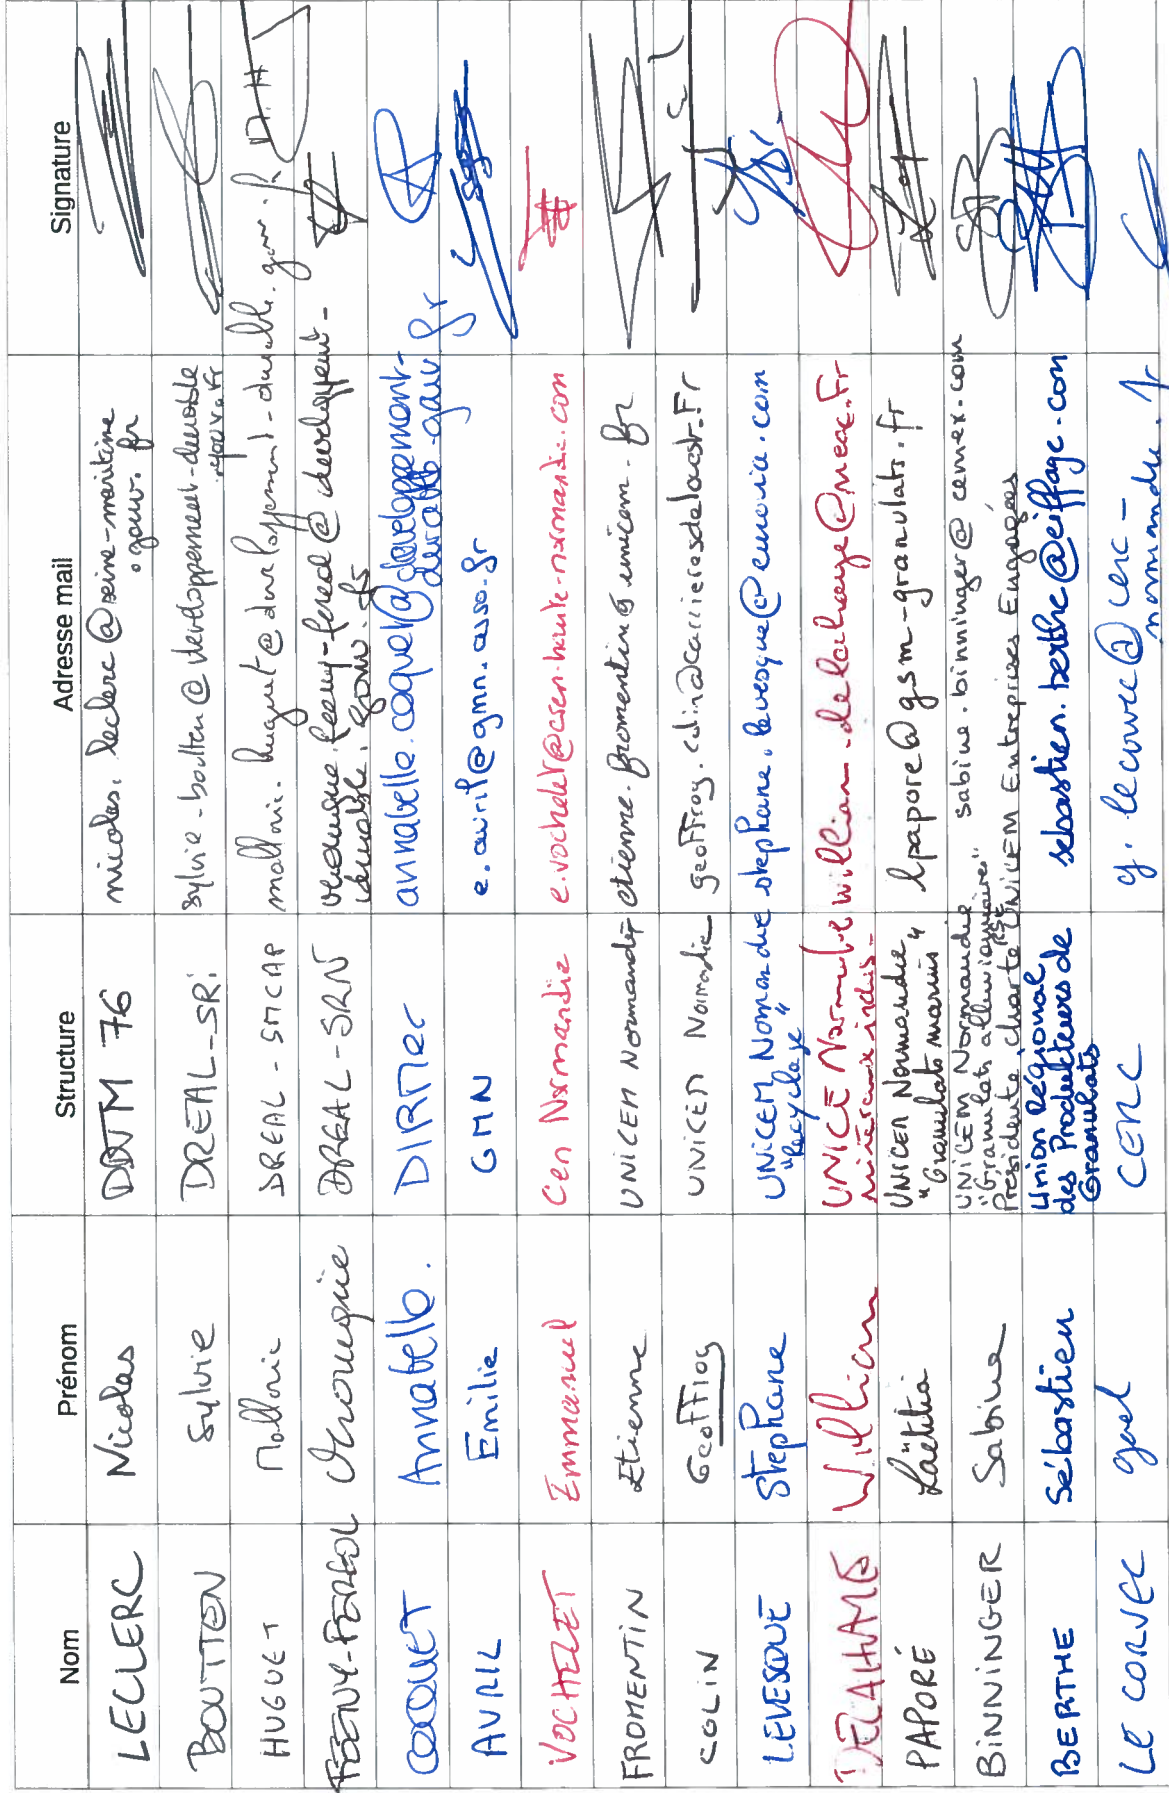 Nom Prénom Structure Adresse mail Signature
LECLERC Nicolas DDTM 76 nicolas.leclerc@seine-maritime
.gouv.fr
BOUTTEN Sylvie DREAL-SRI sylvie-boutten@developpement-durable
.gouv.fr
HUGUET Mallorie DREAL - SMCAP mallorie.huguet@developpement-durable.gouv.fr
FEENY-FEREOL Véronique DREAL-SRN veronique.feeny-fereol@developpement-
durable.gouv.fr
COQUET Annabelle. DIRMer annabelle.coquet@developpement-
durable.gouv.fr
AVRIL Emilie GMN e.avril@gmn.asso.fr
VOCHELET Emmanuel Cen Normandie e.vochelet@cren-haute-normandie.com
FROMENTIN Etienne UNICEM Normandie etienne.fromentin@unicem.fr
COLIN Geoffroy UNICEM Normandie geoffroy.colin@carrieresdelacst.Fr
LEVESQUE Stéphane UNICEM Normandie stephane.levesque@eurovia.com
"Recyclage"
DELAHAYE William UNICEM Normandie william-delahaye@meac.Fr
minéraux indus-
PAPORÉ Laëtitia UNICEM Normandie lpapore@gsm-granulats.fr
"Granulats marins"
BINNINGER Sabine UNICEM Normandie sabine.binninger@cemex.com
"Granulats alluvionnaires"
Présidente charte RSE UNICEM Entreprises Engagées
BERTHE Sébastien Union Régional sebastien.berthe@eiffage.com
des Producteurs de
Granulats
LE CORVEC gael CERC g.lecorvec@cerc-
normandie.fr